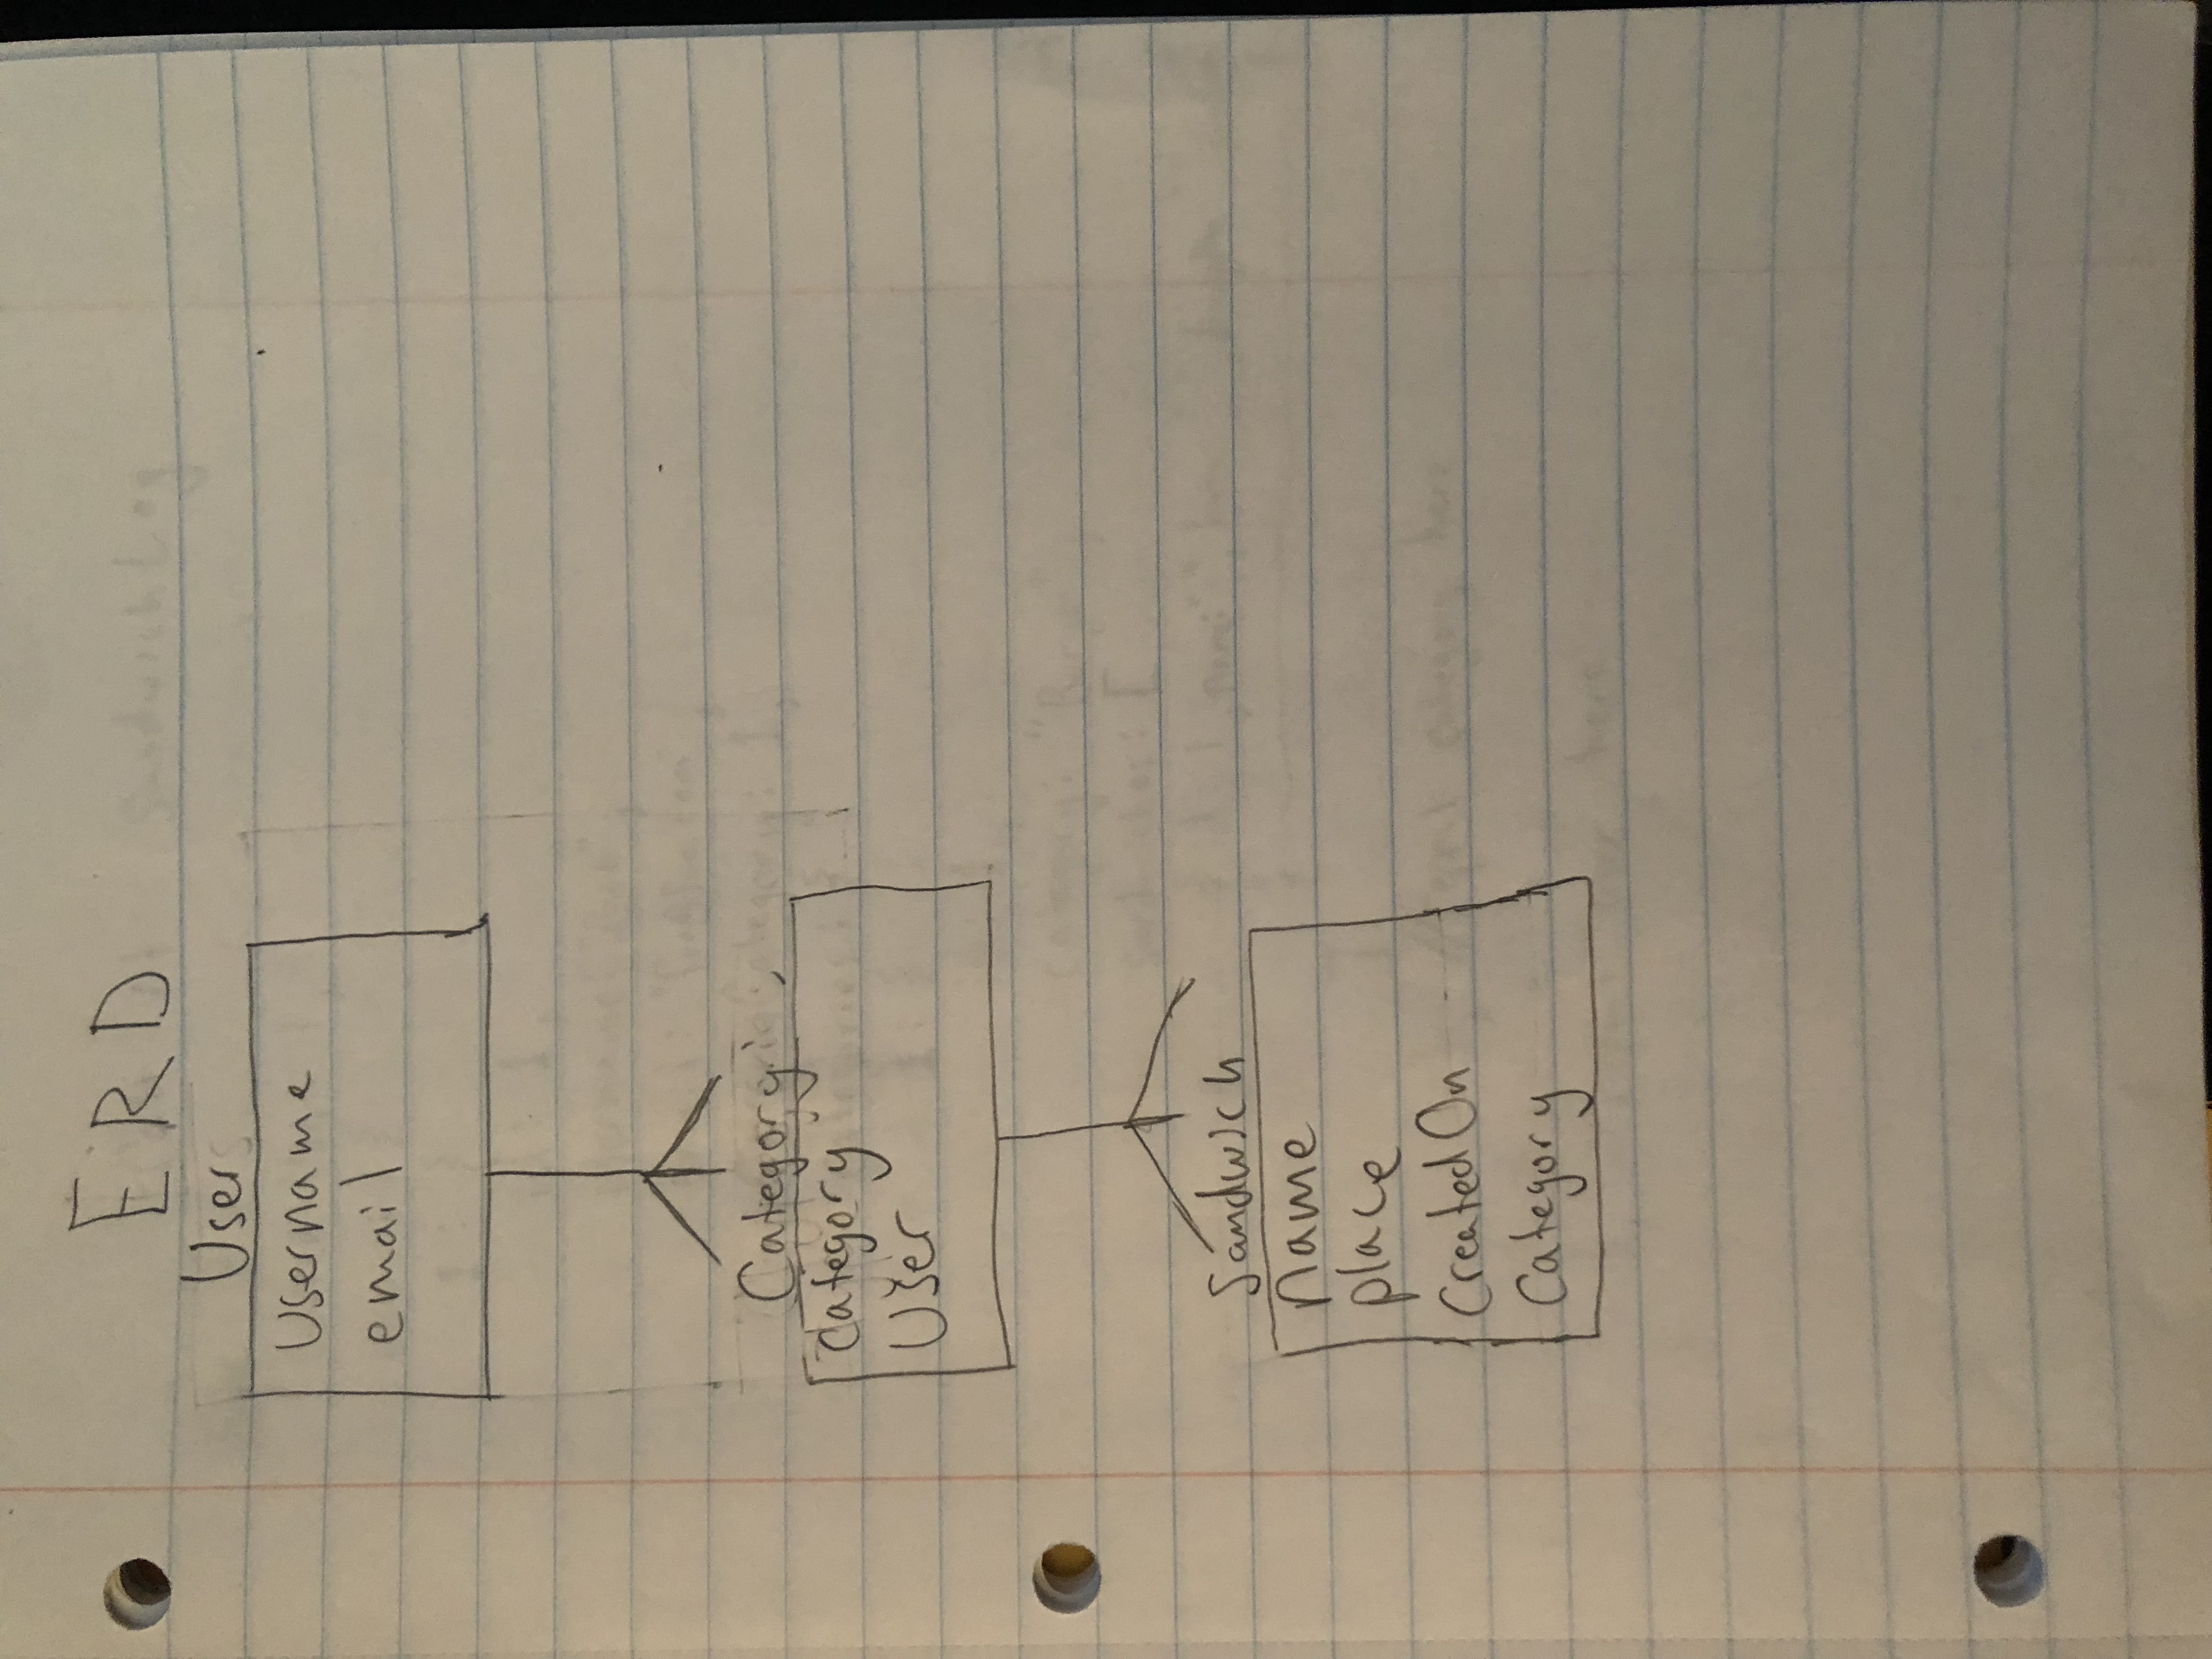 ERD
User
Username
email
Category
Category
User
Sandwich
name
place
CreatedOn
Category